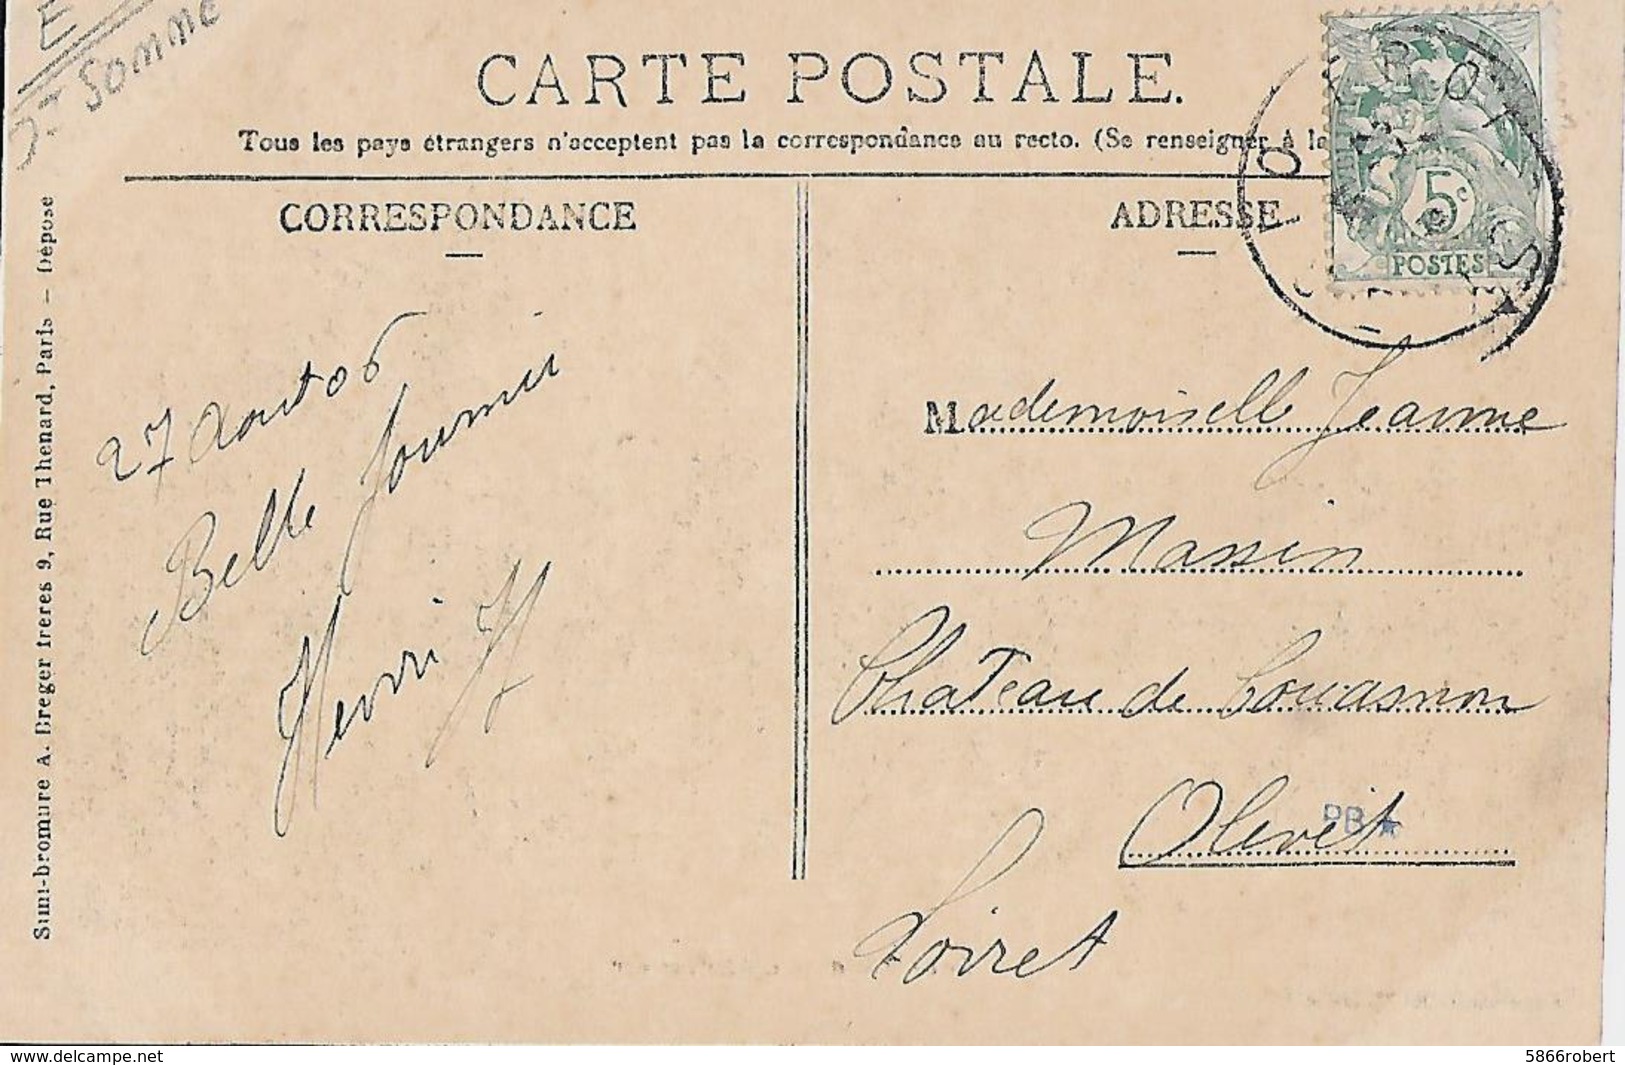 E
Somme
CARTE POSTALE.
Tous les pays étrangers n'acceptent pas la correspondance au recto. (Se renseigner à la
CORRESPONDANCE
ADRESSE
5c
POSTES
27 Aout 06
Belle journée
Henri H
Mademoiselle Jeanne
Massin
Château de Couasnon
Olivet
Loiret
PB★
Simi-bromure A. Breger frères 9, Rue Thenard, Paris – Déposé
delcampe.net
5866robert